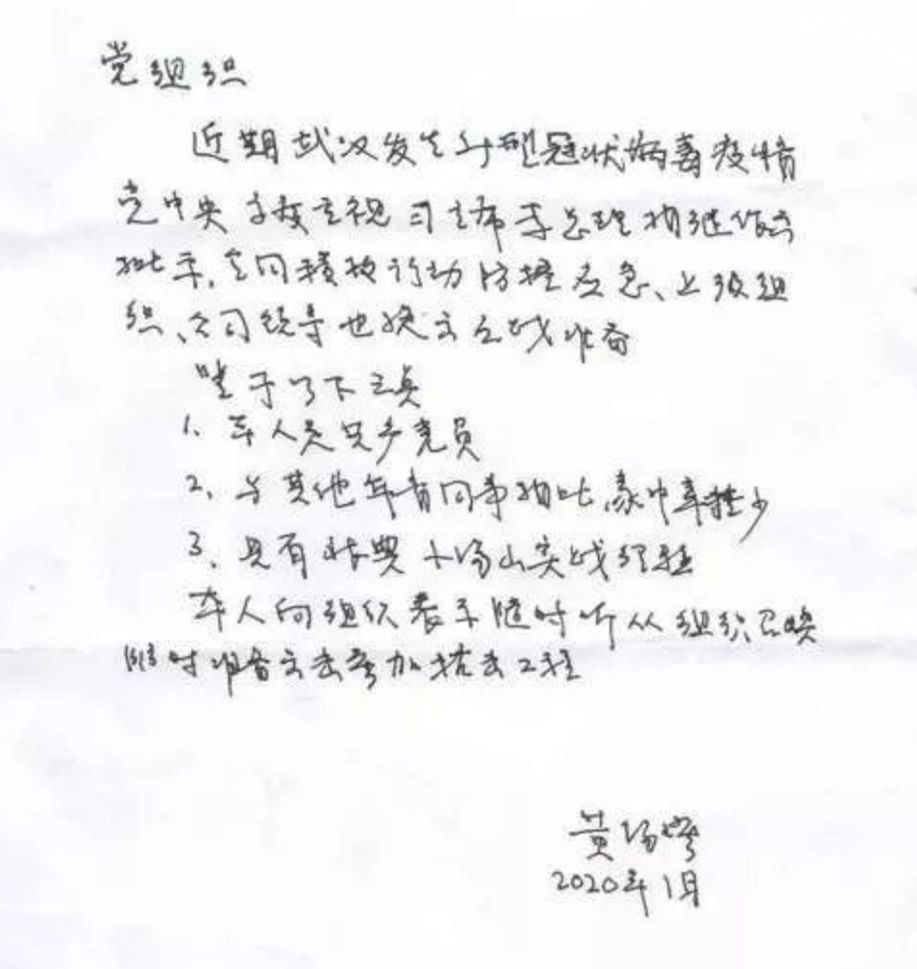 党组织
近期武汉发生新型冠状病毒疫情
党中央高度重视习主席李总理相继作出
批示,全国积极行动防控应急、上级组
织、公司领导也按立之战准备
鉴于以下三点
1、本人是共产党员
2、与其他年青同事相比,家中牵挂少
3、具有非典小汤山实战经验
本人向组织表示随时听从组织召唤
随时准备出去参加抗击工程
黄
2020年1月